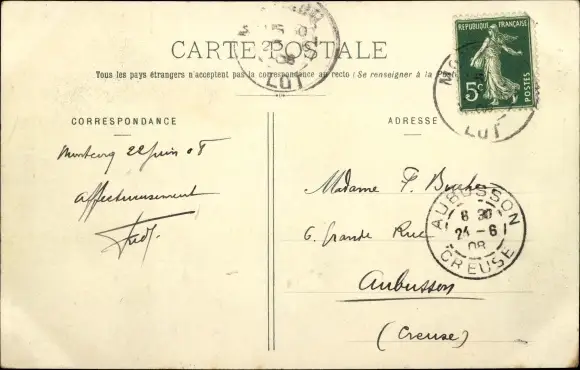 CARTE POSTALE
Tous les pays étrangers n'acceptent pas la correspondance au recto (Se renseigner à la
RÉPUBLIQUE FRANÇAISE
5c
POSTES
LOT
LOT
CORRESPONDANCE
ADRESSE
Montcuq 22 juin 08
affectueusement
Madame P.
6. Grande Rue
Aubusson
(Creuse)
AUBUSSON
8 30
24 - 6
08
CREUSE